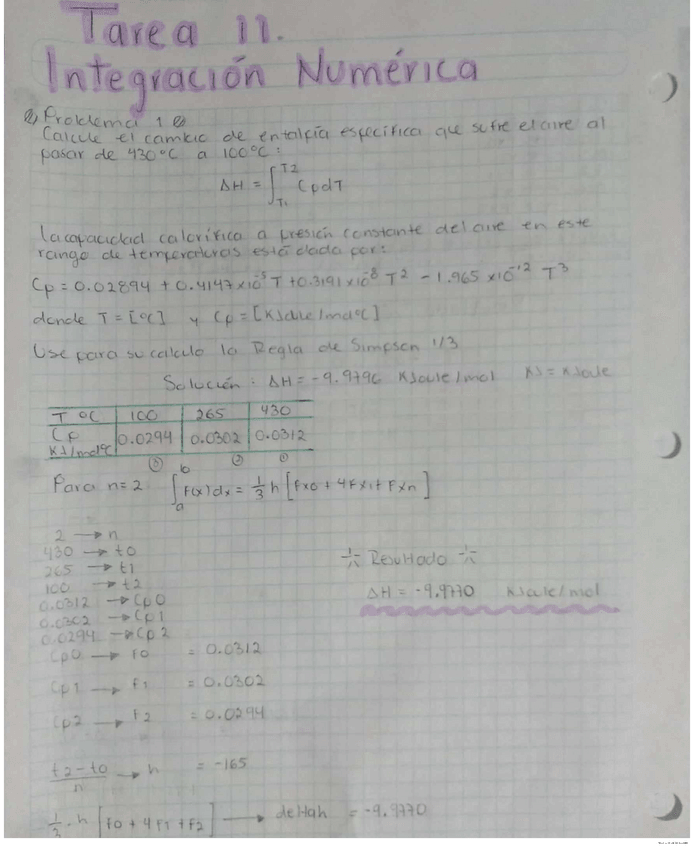 Tarea 11.
Integración Numérica
Problema 1
Calcule el cambio de entalpía específica que sufre el aire al
pasar de 430°C a 100°C:
ΔH = ∫T₁T2 CpdT
La capacidad calorífica a presión constante del aire en este
rango de temperaturas está dada por:
Cp = 0.02894 + 0.4147x10⁻⁵ T + 0.3191x10⁻⁸ T² - 1.965 x10⁻¹² T³
donde T = [°C] y Cp = [KJoule/mol°C]
Use para su calculo la Regla de Simpson 1/3
Solución: ΔH = -9.9796 KJoule/mol KJ = KJoule
T °C 100 265 430
Cp KJ/mol°C 0.0294 0.0302 0.0312
③ ② ①
Para n=2 ∫ab F(x)dx = 1/3 h [Fx0 + 4Fx1 + Fxn]
2 → n
430 → t0
265 → t1
100 → t2
0.0312 → Cp0
0.0302 → Cp1
0.0294 → Cp2
Cp0 → f0 = 0.0312
Cp1 → f1 = 0.0302
Cp2 → f2 = 0.0294
t2-t0/n → h = -165
1/3 · h [f0 + 4f1 + f2] → deltah = -9.9770
Resultado
ΔH = -9.9770 KJoule/mol